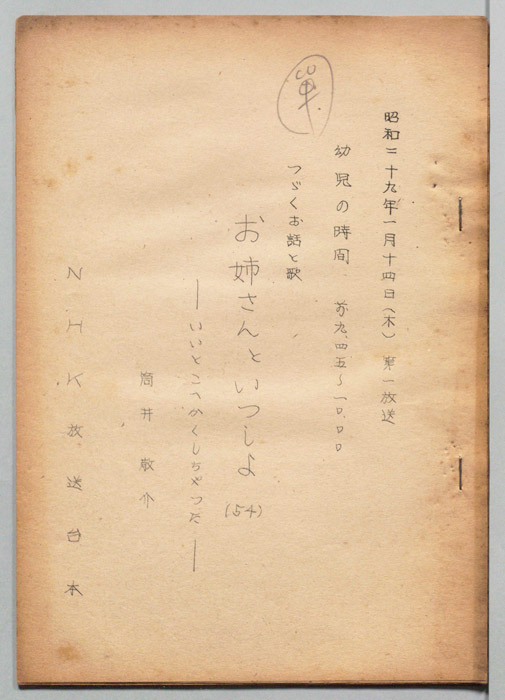 単
昭和二十九年一月十四日(木) 第一放送
幼児の時間 前九.四五~一〇.〇〇
つゞくお話と歌
お姉さんといつしよ (54)
―いいとこへかくしちやつた―
筒井敬介
NHK放送台本